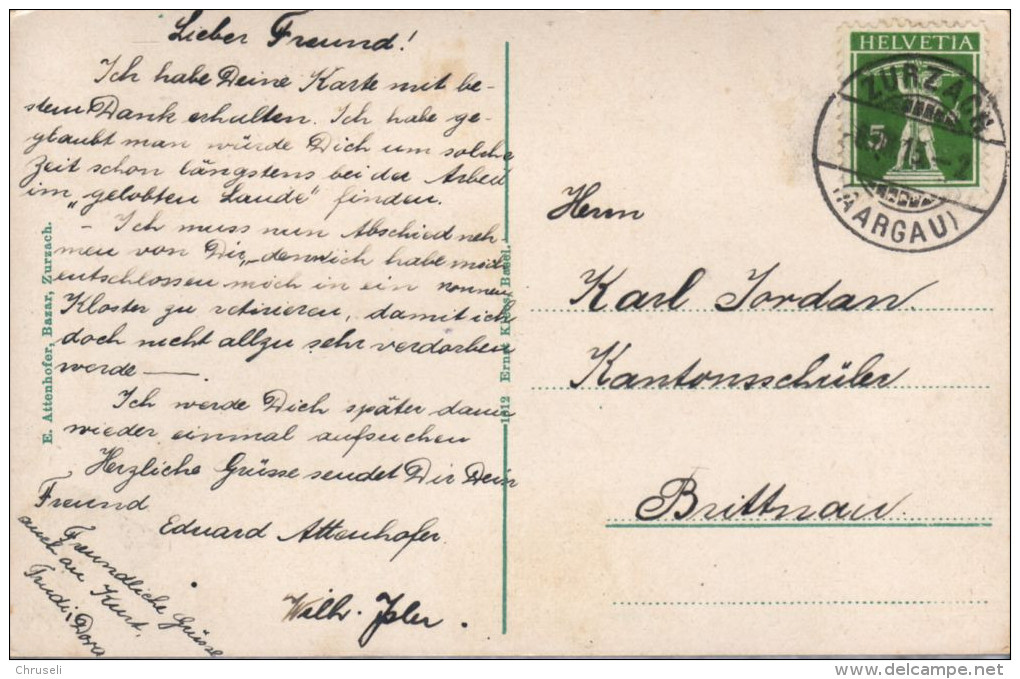 Lieber Freund!
Ich habe Deine Karte mit be-
stem Dank erhalten. Ich habe ge-
glaubt man würde Dich um solche
Zeit schon längstens bei der Arbeit
im „gelobten Lande" finden.
– Ich muss nun Abschied neh-
men von Dir, denn ich habe mich
entschlossen mich in ein Nonnen
Kloster zu retirieren, damit ich
doch nicht allzu sehr verdorben
werde —
Ich werde Dich später dann
wieder einmal aufsuchen
Herzliche Grüsse sendet Dir Dein
Freund
Eduard Attenhofer.
Freundliche Grüsse
auch an Kurt,
Trudi, Dora
Wilh.
E. Attenhofer, Bazar, Zurzach.
1312 Ernst Basel.
HELVETIA
5
ZURZACH
(AARGAU)
Herrn
Karl Jordan.
Kantonsschüler
Brittnau.
Chruseli
www.delcampe.net